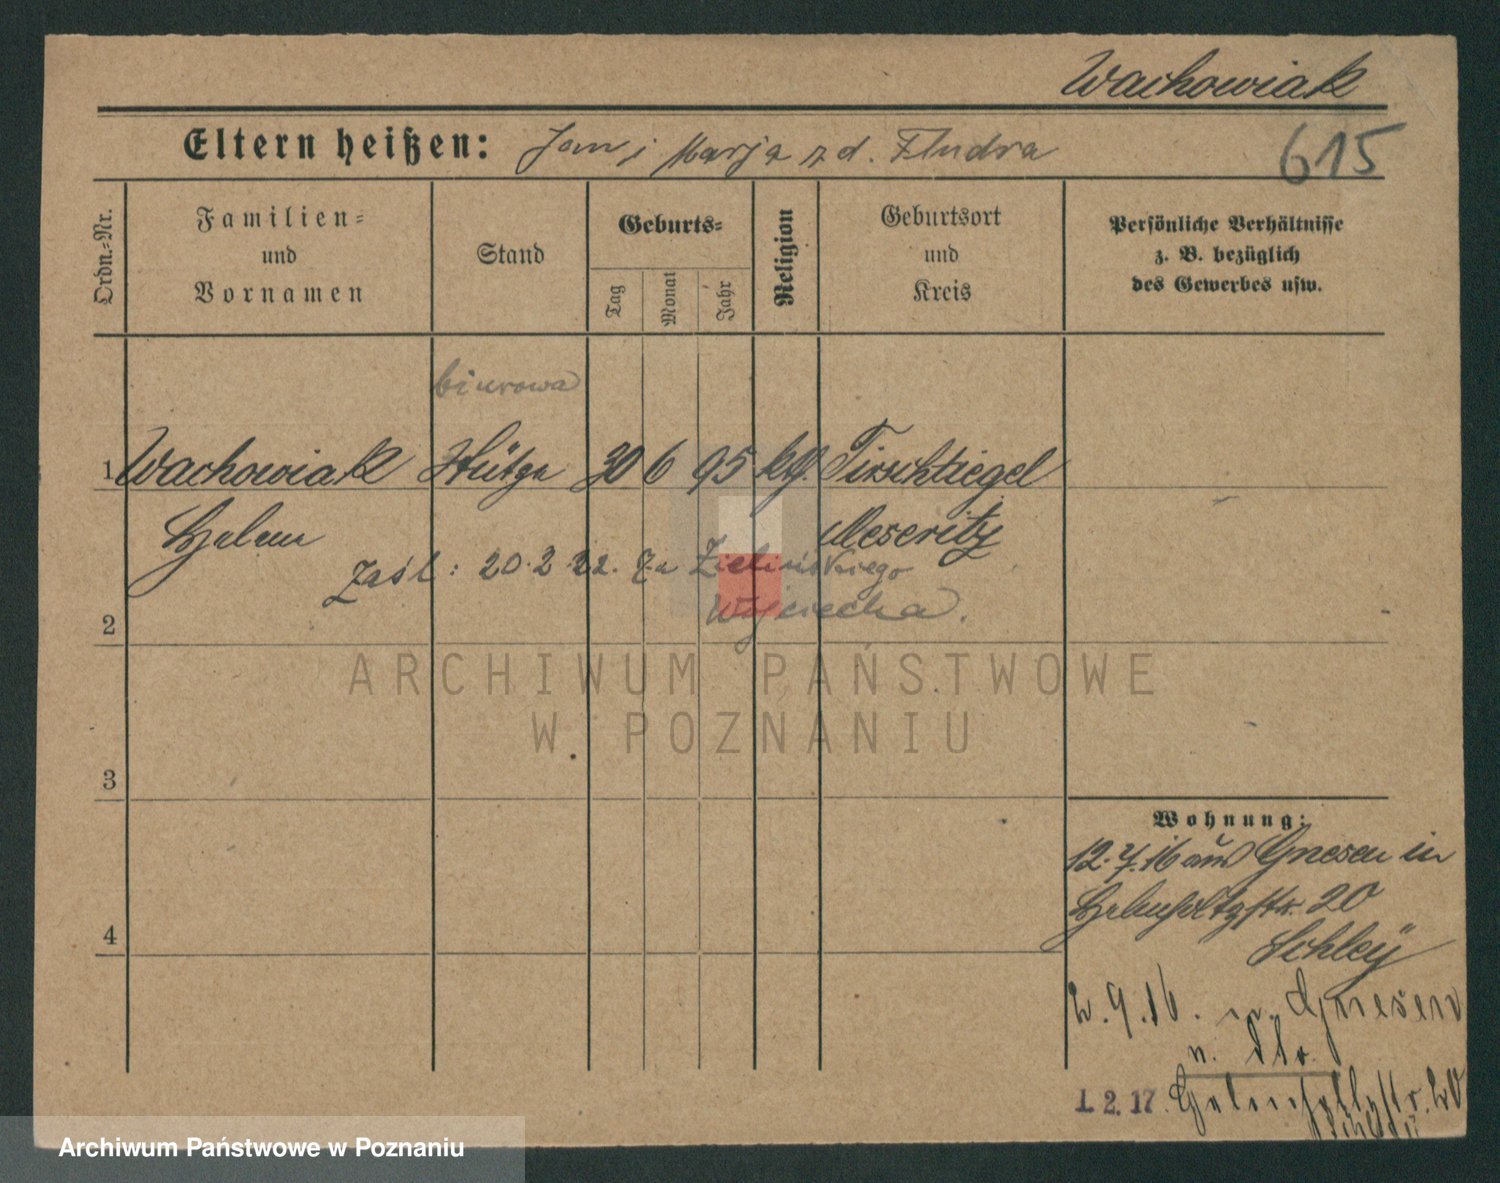 Wachowiak
Eltern heißen: Jan i Marja z d. Fludra
615
Ordn.-Nr.
Familien-
und
Vornamen
Stand
Geburts-
Tag
Monat
Jahr
Religion
Geburtsort
und
Kreis
Persönliche Verhältnisse
z. B. bezüglich
des Gewerbes usw.
biurowa
1 Wachowiak Stütze 30 6 95 kth. Tirschtiegel
Helene Meseritz
zaśl: 20.2.22. za Zielińskiego
Wojciecha.
2
ARCHIWUM PAŃSTWOWE
W POZNANIU
3
Wohnung:
12.7.16 aus Gnesen in
20
4
Schley
2.9.16. n. Gnesen
1.2.17. 20
Archiwum Państwowe w Poznaniu